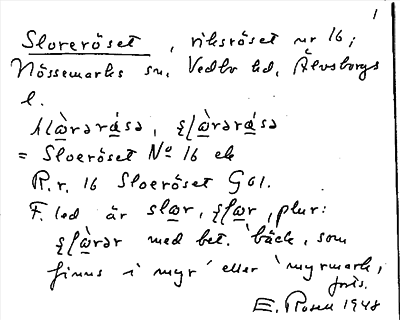 1
Sloreröset, riksröset nr 16;
Nössemarks sn. Vedbo hd, Älvsborgs
l.
= Sloeröset No 16 ek
R.r. 16 Sloeröset G61.
F. led är slɷr, , plur:
med bet. 'bäck, som
finns i myr' eller 'myrmark,
E. Rosen 1948